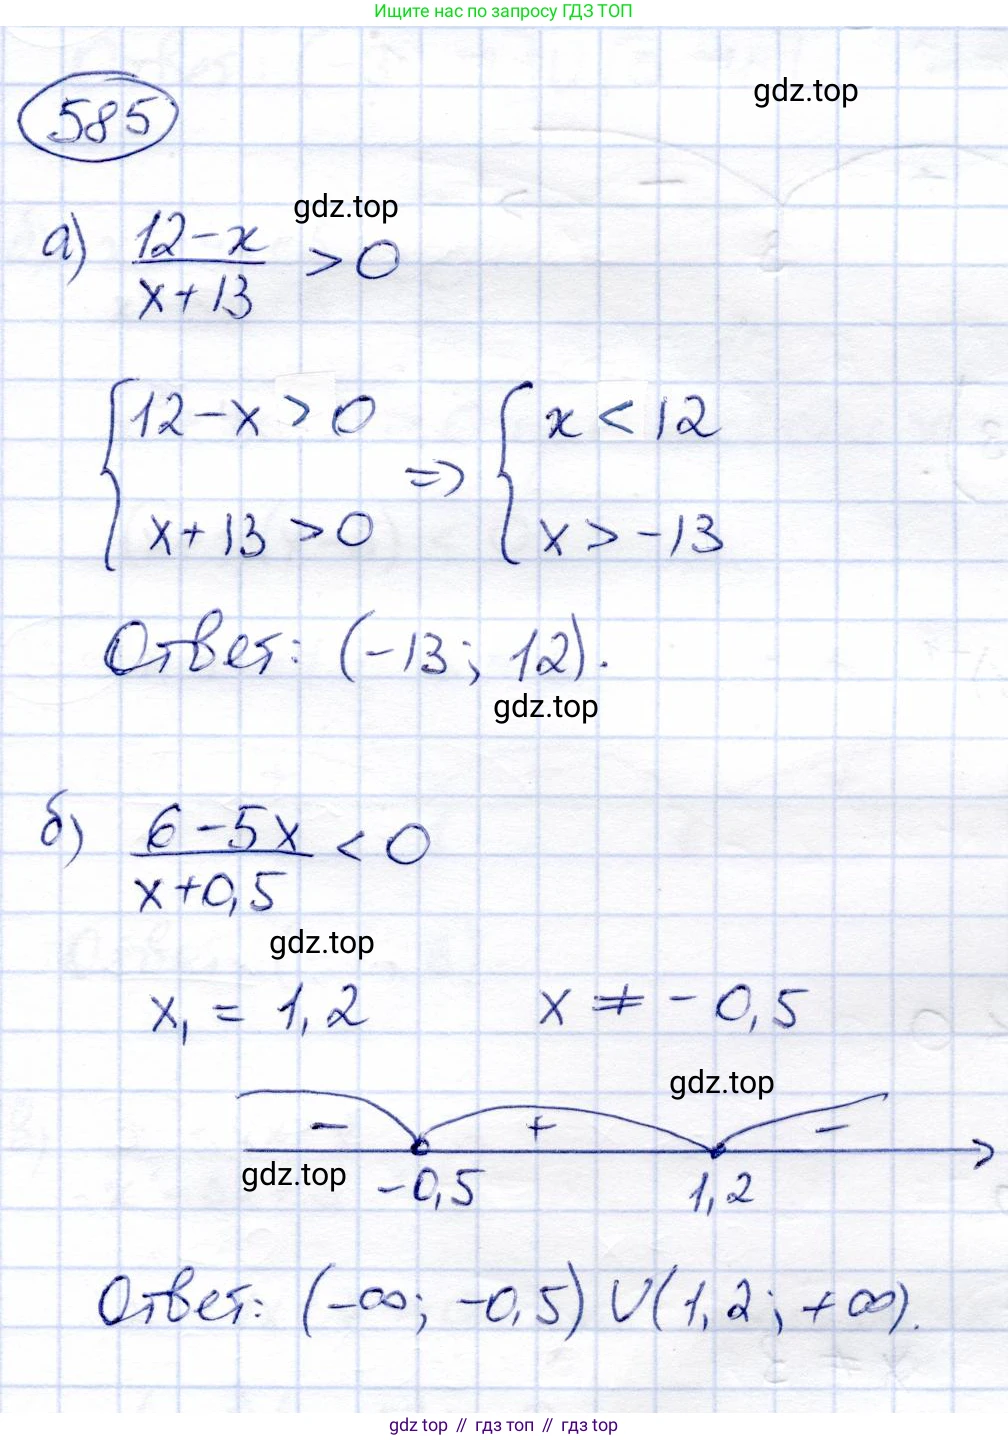 Ищите нас по запросу ГДЗ ТОП
585
gdz.top
gdz.top
а) (12-x)/(x+13) > 0
{12-x > 0 => {x < 12
{x+13 > 0 {x > -13
Ответ: (-13; 12).
gdz.top
б) (6-5x)/(x+0,5) < 0
gdz.top
x₁ = 1,2 x ≠ -0,5
gdz.top
- + -
gdz.top
-0,5 1,2
Ответ: (-∞; -0,5) ∪ (1,2; +∞).
gdz.top // гдз топ // gdz.top